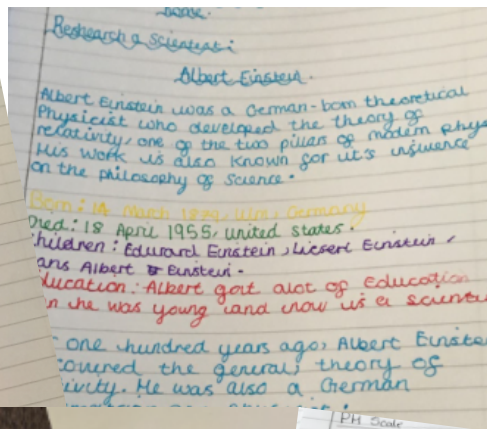 Reshearch a scientist:
Albert Einstein.
Albert Einstein was a German-born theoretical
Physicist who developed the theory of
relativity, one of the two pillars of modern phys
His work is also known for it's influence
on the philosophy of science.
Born: 14 March 1879, Ulm, Germany
Died: 18 April 1955, united states.
hildren: Eduard Einstein, Lieserl Einstein,
ans Albert Einstein.
ducation: Albert got alot of education
n he was young and now is a scienti
one hundred years ago, Albert Einste
covered the general theory of
ivity. He was also a German
PH Scale